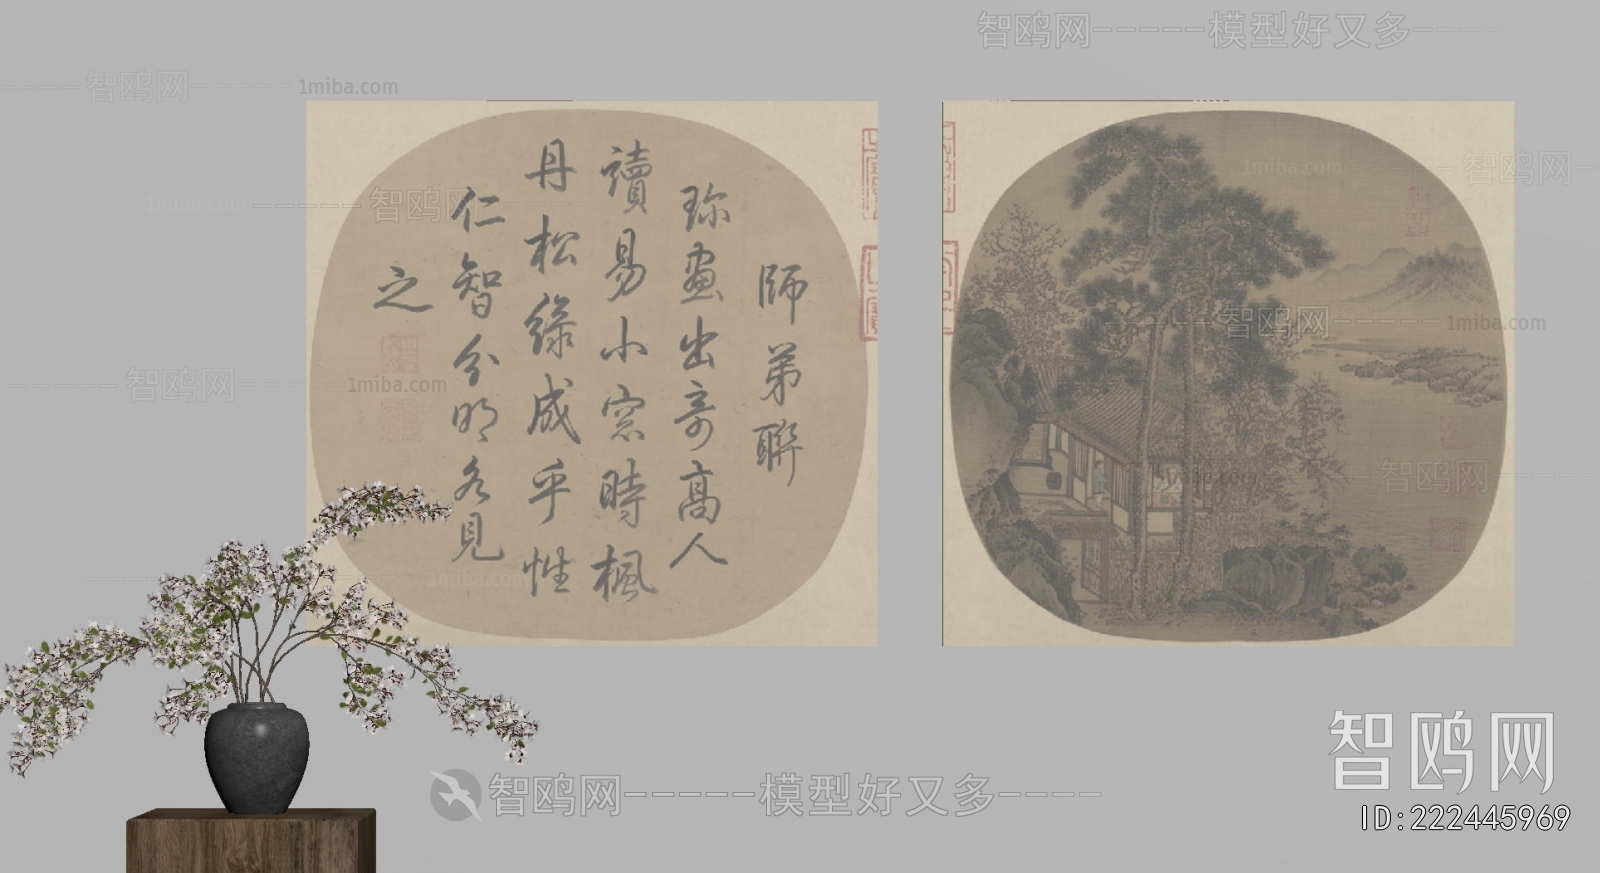 智鸥网-----模型好又多----
智鸥网
1miba.com
師弟聯
珎畫出奇髙人
讀易小窓時楓
丹松緑成乎性
仁智分明各見
之
1miba.com
智鸥网
1miba.com
智鸥网
智鸥网
1miba.com
智鸥网
1miba.com
智鸥网
1miba.com
1miba.com
智鸥网
智鸥网-----模型好又多----
智鸥网
ID:222445969